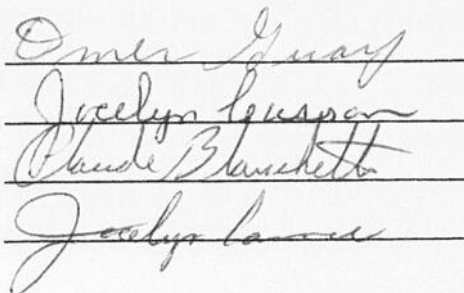 Omer Guay
Jocelyn
Claude Blanchette
Jocelyn